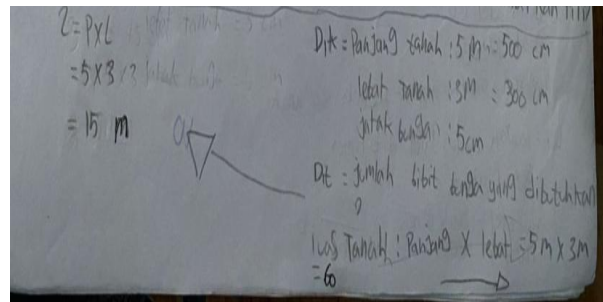 L = P x L
= 5 x 3
= 15 m
Dik = Panjang tanah : 5 m = 500 cm
lebar tanah : 3m = 300 cm
jarak bunga : 5cm
Dit : jumlah bibit bunga yang dibutuhkan
?
luas Tanah : Panjang x lebar = 5 m x 3m
= 60